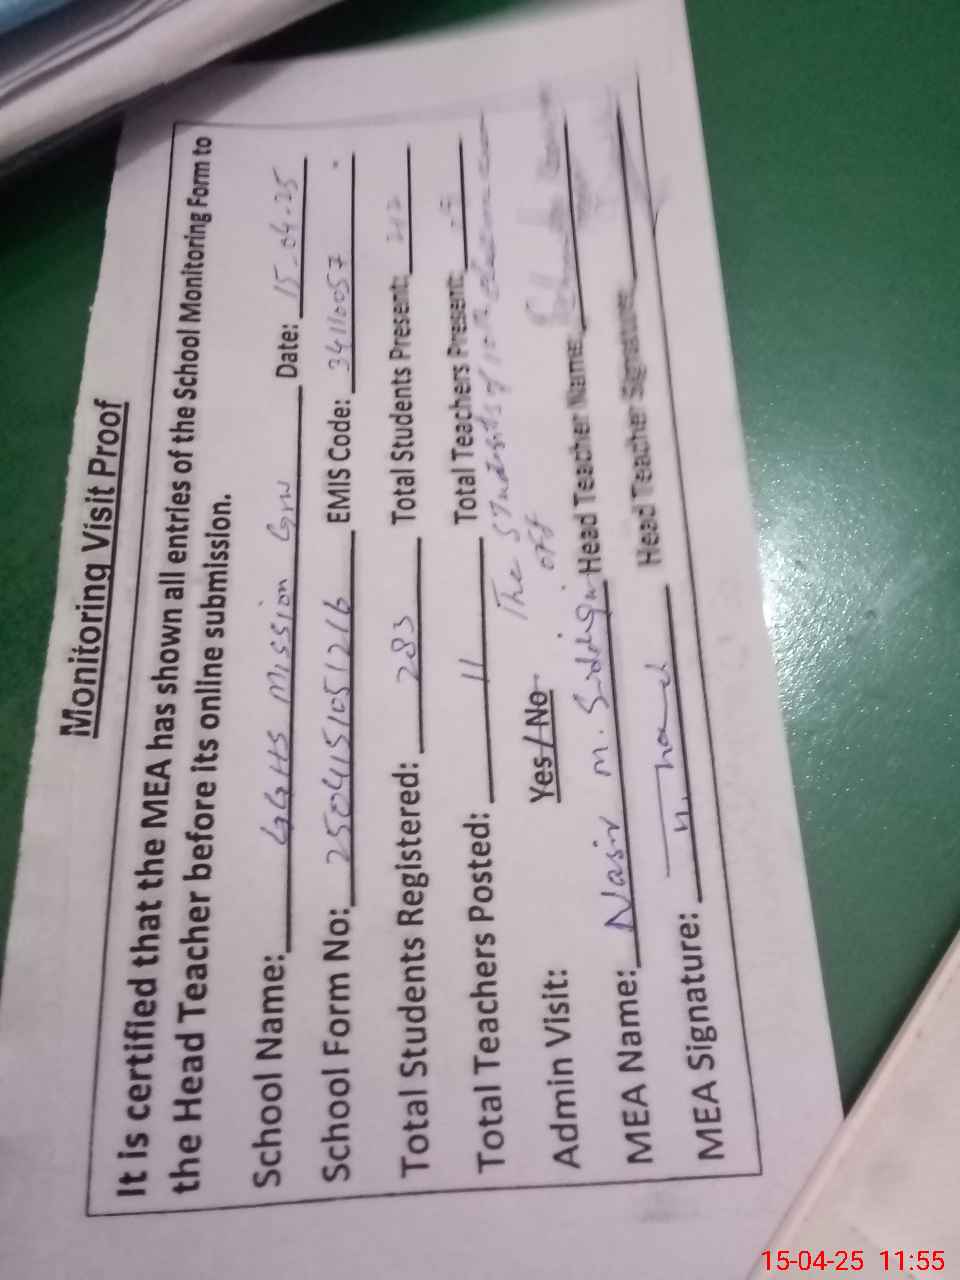 Monitoring Visit Proof
It is certified that the MEA has shown all entries of the School Monitoring Form to
the Head Teacher before its online submission.
School Name: GGHS Mission Grw Date: 15-04-25
School Form No: 2504151051216 EMIS Code: 34110057
Total Students Registered: 283 Total Students Present: 212
Total Teachers Posted: 11 Total Teachers Present: 09
The students of 10th class are
off
Admin Visit: Yes / No
MEA Name: Nasir M. Siddiqui Head Teacher Name:
MEA Signature: Head Teacher Signature:
15-04-25 11:55